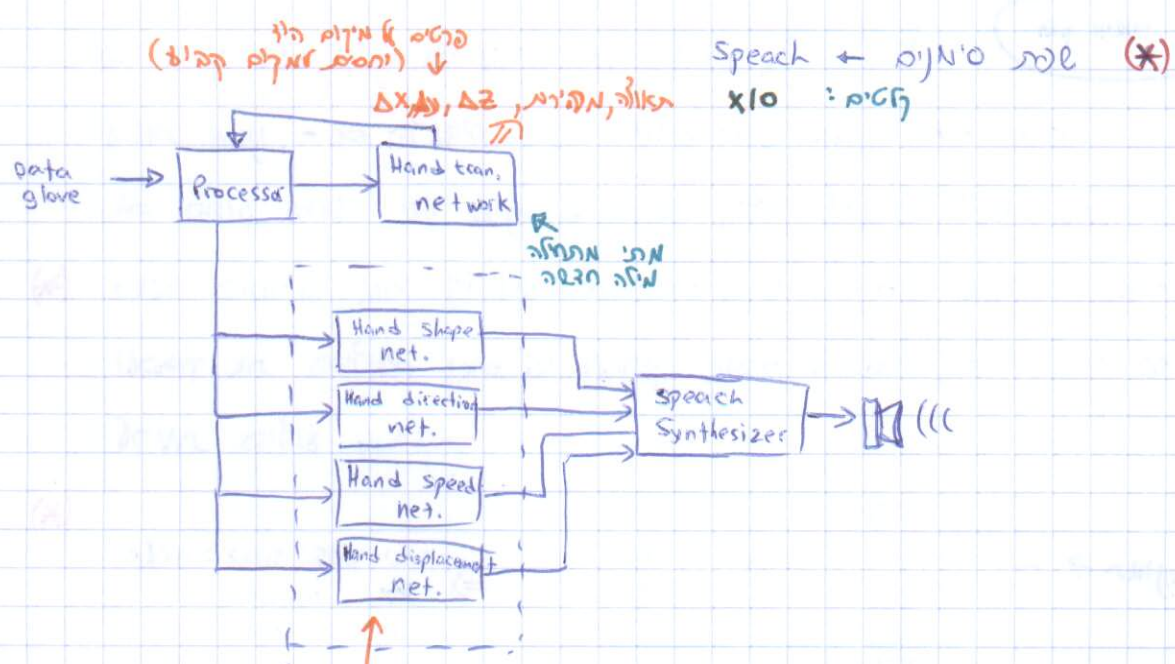 (*) שפת סימנים ← Speach
קלטים : x/o
פרטים על מיקום היד
(יחסים למקום קבוע)
תאוצה, מהירות, ΔX, ΔY, ΔZ
Data
glove
Processor
Hand tran.
network
מתי מתחילה
מילה חדשה
Hand shape
net.
Hand direction
net.
Hand speed
net.
Hand displacement
net.
speach
Synthesizer